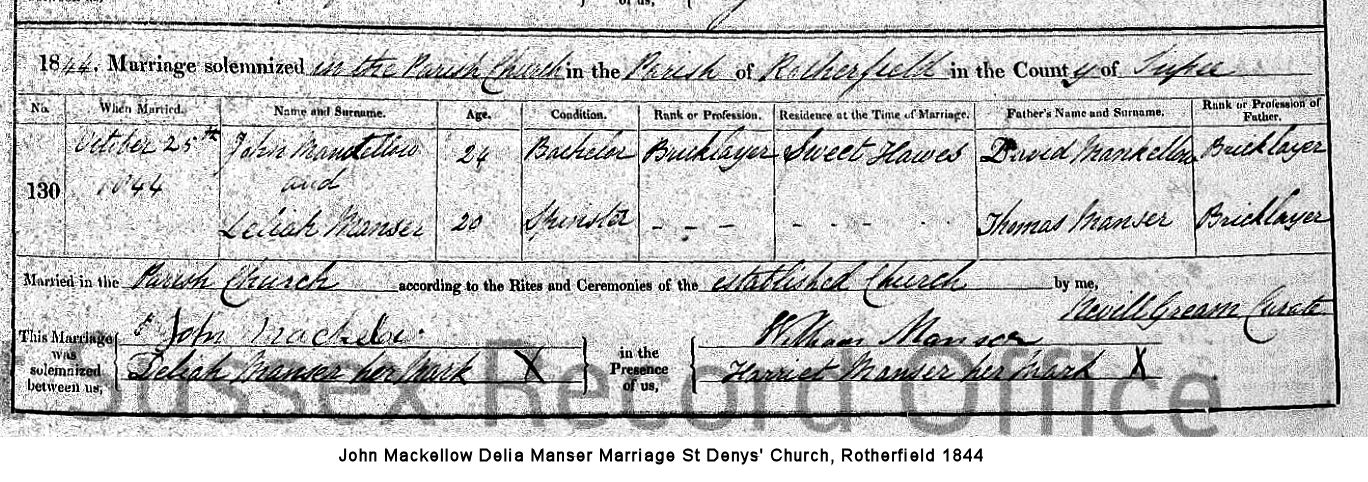 1844. Marriage solemnized in the Parish Church in the Parish of Rotherfield in the County of Sussex
No. When Married. Name and Surname. Age. Condition. Rank or Profession. Residence at the Time of Marriage. Father's Name and Surname. Rank or Profession of Father.
October 25th John 24 Bachelor Bricklayer Sweet Hawes David Mankellow Bricklayer
130 1844 and
Leliah Manser 20 Spinster - - - - - - - Thomas Manser Bricklayer
Married in the Parish Church according to the Rites and Ceremonies of the established Church by me,
Nevill Curate
This Marriage was solemnized between us, John in the Presence of us, William Manser
Deliah Manser her Mark X Harriet Manser her Mark X
Sussex Record Office
John Mackellow Delia Manser Marriage St Denys' Church, Rotherfield 1844